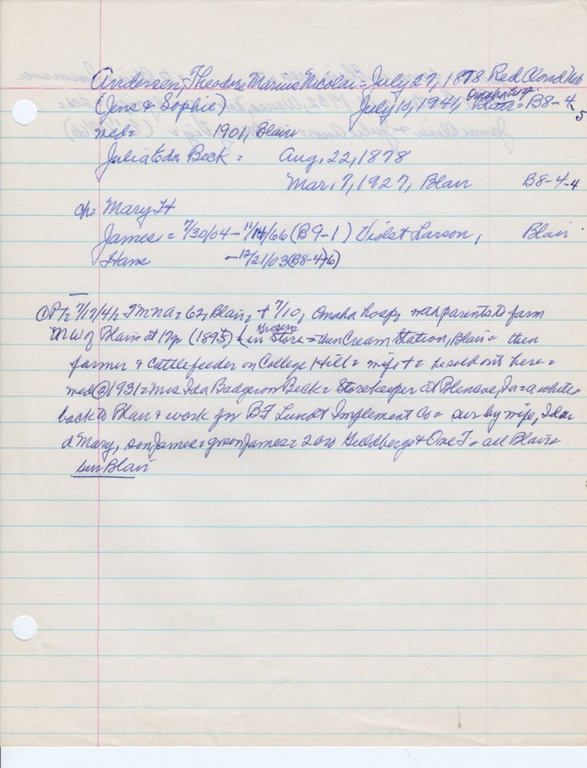 Andersen, Theodore Marius Nicolai = July 27, 1878 Red Cloud Neb
(Jens & Sophie) July 10, 1941, Omaha hosp B8-4-5
med = 1901, Blair
Julia Eda Beck = Aug, 22, 1878
Mar, 7, 1927, Blair B8-4-4
ch = Mary H
James = 7/30/04 - 11/14/66 (B9-1) Violet Larson, Blair
Hans - 12/21/03 (B8-4-6)
PT, 7/17/41, TMNA = 62, Blair, + 7/10, Omaha hosp, with parents to farm
NW of Blair at 17 yr (1895) & in Grocery Store = then Cream Station, Blair = then
farmer & cattlefeeder on College Hill = wife + = he sold out here =
med (2) 1931 = Mrs Ida Badgerow Beck = Storekeeper at Blencoe, Ia = a while
back to Blair & work for BF Lundt Implement Co = sur by wife, Ida
d Mary, son James = gson James = 2 bros Guldberg & One T = all Blair =
bur Blair